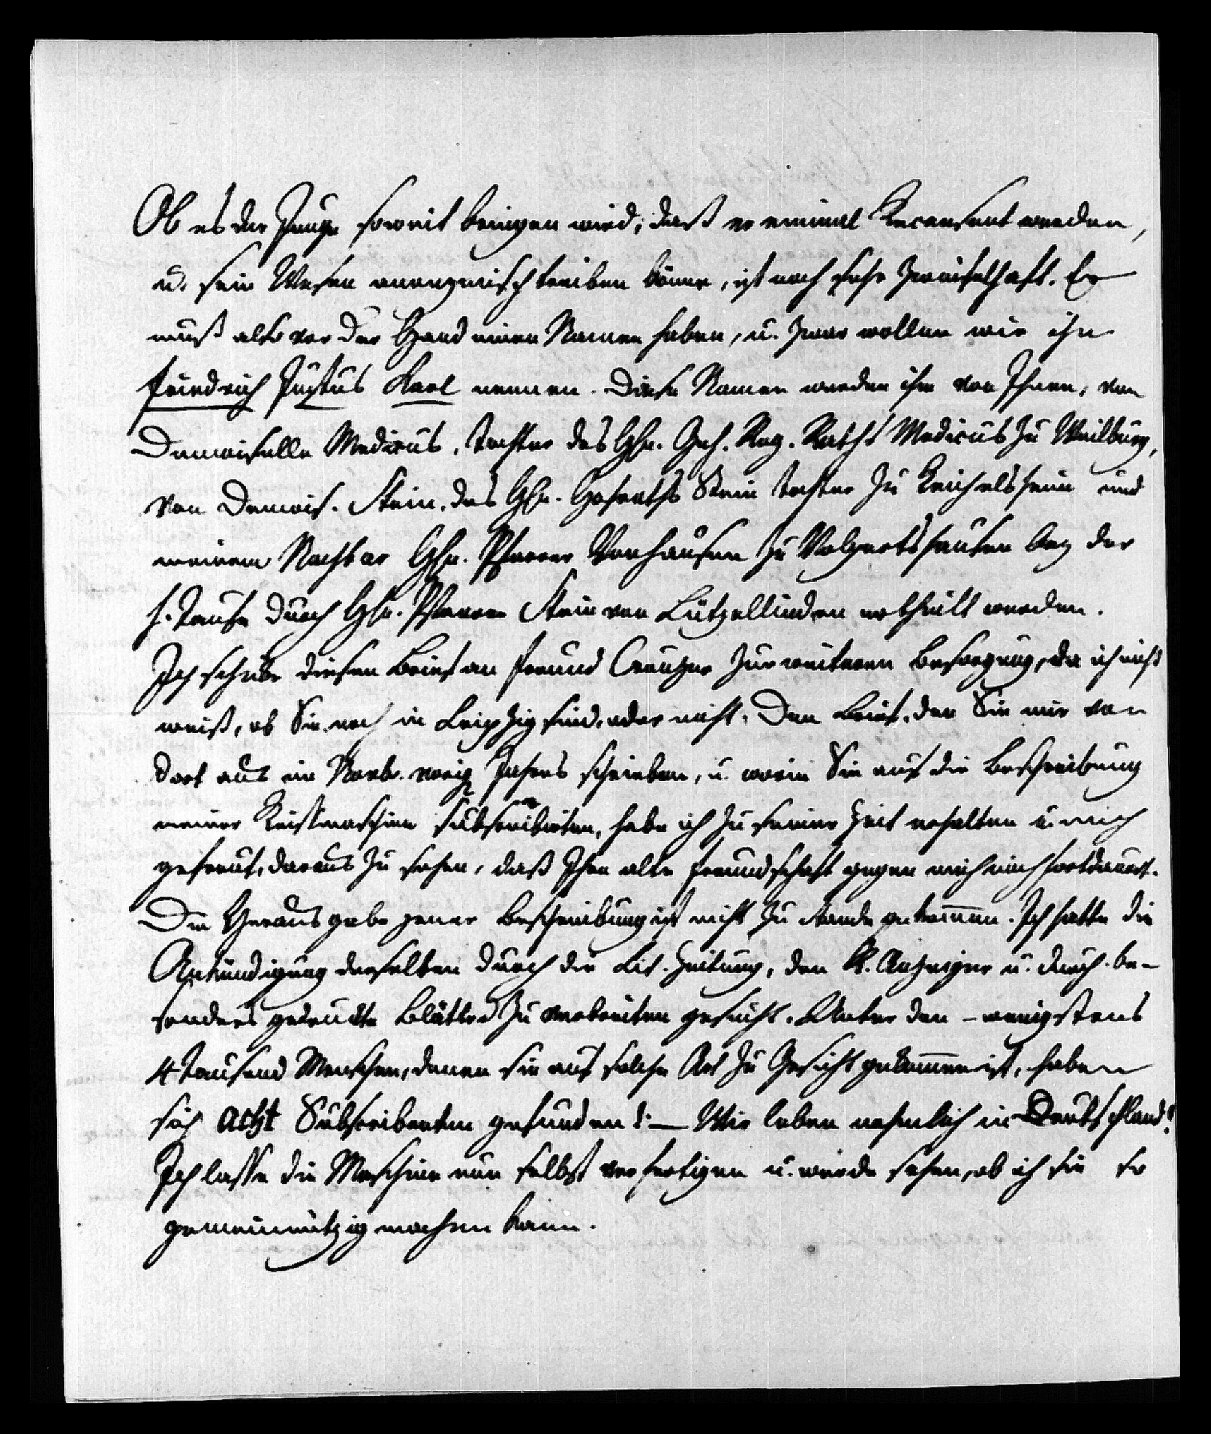 Ob es der Junge soweit bringen wird, daß er einmal Recensent werden,
u. sein Wesen anonymisch treiben könne, ist noch sehr zweifelhaft. Er
muß also vor der Hand einen Namen haben, u. zwar wollen wir ihn
Friedrich Justus Karl nennen. Diese Namen werden ihm von Ihnen, von
Demoiselle Medicus, Tochter des Hhr. Geh. Reg. Raths Medicus zu Weilburg,
von Demois. Stein, des Hhr. Hofraths Stein Tochter zu Reichelsheim und
meinem Nachbar Hhr. Pfarrer Vonhausen zu Volpertshausen bey der
h. Taufe durch Hhr. Pfarrer Stein von Lützellinden ertheilt werden.
Ich schicke diesen Brief an Freund Creuzer zur weiteren Besorgung, da ich nicht
weiß, ob Sie noch in Leipzig sind, oder nicht. Den Brief, den Sie mir von
dort aus im Novbr. vorig Jahres schrieben, u. worin Sie auf die Beschreibung
meiner subscribirten, habe ich zu seiner Zeit erhalten u. mich
gefreut, daraus zu sehen, daß Ihre alte Freundschaft gegen mich noch fortdauert.
Die Herausgabe jener Beschreibung ist nicht zu Stande gekommen. Ich hatte die
Ankündigung derselben durch die Lit. Zeitung, den R. Anzeiger u. durch be-
sonders gedruckte Blätter zu verbreiten gesucht. Unter den – wenigstens
4 tausend Menschen, denen sie auf solche Art zu Gesicht gekommen ist, haben
sich acht Subscribenten gefunden! — Wir leben nehmlich in Deutschland!
Ich lasse die Maschine nun selbst verfertigen u. werde sehen, ob ich sie so
gemeinnützig machen kann.